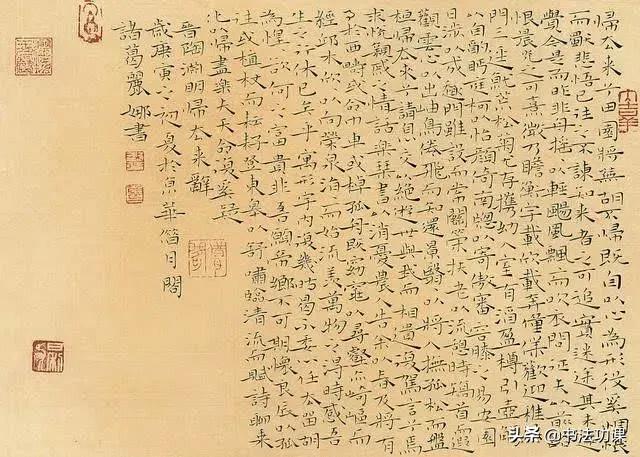 歸去來兮田園將蕪胡不歸既自以心為形役奚惆悵
而獨悲悟已往之不諫知來者之可追實迷途其未遠
覺今是而昨非舟搖以輕颺風飄而吹衣問征夫以前路
恨晨光之熹微乃瞻衡宇載欣載奔僮僕歡迎稚子
門三逕就荒松菊猶存攜幼入室有酒盈樽引壺觴
以自酌眄庭柯以怡顏倚南窗以寄傲審容膝之易安園
日涉以成趣門雖設而常關策扶老以流憩時矯首而遐
觀雲無心以出岫鳥倦飛而知還景翳翳以將入撫孤松而盤
桓歸去來兮請息交以絕游世與我而相遺復駕言兮焉
求悅親戚之情話樂琴書以消憂農人告余以春及將有
事於西疇或命巾車或棹孤舟既窈窕以尋壑亦崎嶇而
經邱木欣欣以向榮泉涓涓而始流羨萬物之得時感吾
生之行休已矣乎寓形宇內復幾時曷不委心任去留胡
為遑遑欲何之富貴非吾願帝鄉不可期懷良辰以孤
往或植杖而耘耔登東皋以舒嘯臨清流而賦詩聊乘
化以歸盡樂夫天命復奚疑
晉陶淵明歸去來辭
歲庚寅之初夏於京華簪月閣
諸葛麗娜書
头条 @书法功课